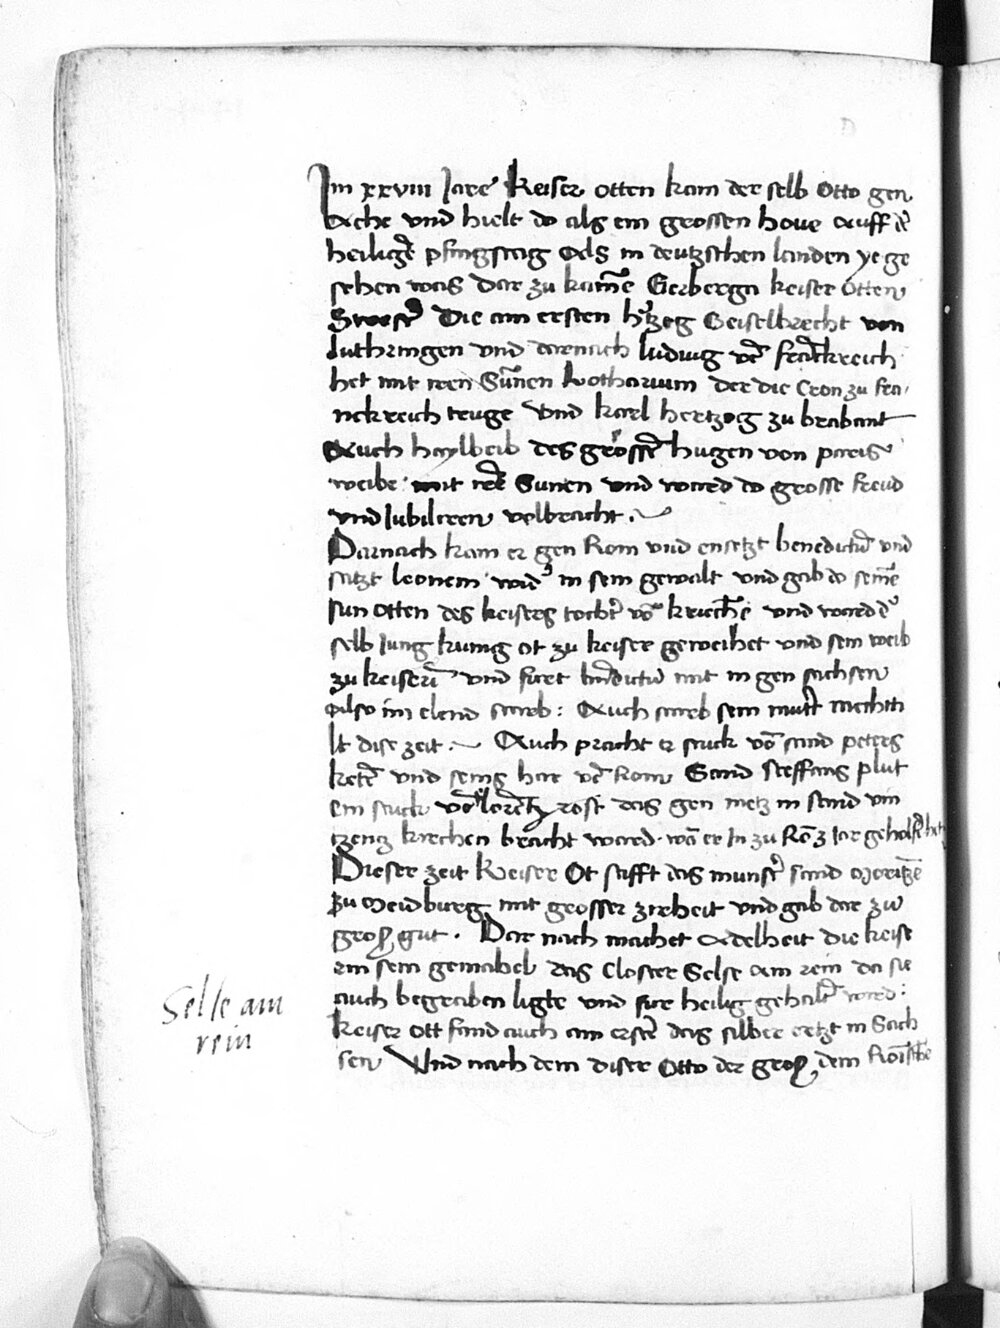 Im xxviii Jare Keiser otten kam der selb Otto gen
Ache vnd hielt do als ein grossen hove Auff d'
heilige pfingstag Als in deutzschen landen ye ge
sehen was Dar zu kame Gerberga keiser Otten
Swest' Die am ersten h'tzog Geiselbrecht von
luthringen vnd darnach ludwig vo franckreich
het mit iren Sunen Lotharium der die Cron zu fra
nckreich truge Vnd karl hertzog zu brabant
Auch haylbeib des grosse hugen von paris
weibe mit ire Sunen vnd ward do grosse freud
vnd Jubiliren volbracht.
Darnach kam er gen Rom vnd entsetzt benedictu vnd
satzt leonem wid' in sein gewalt vnd gab do seine
sun otten des keisers tocht' vo krieche vnd ward d'
selb Jung kunig ot zu keiser geweihet vnd sein weib
zu keiseri vnd furt bndictu mit in gen sachsen
Also im elend starb: Auch starb sein mutt' Mechth
lt dise zeit. Auch pracht er stuck vo sand peters
kete vnd seins har vo Rom Sand steffans plut
ein stuck vo lorentz rost das gen metz in sand vin
tzentz kirchen bracht ward wa er In zu Ro 3 Jar geholfe het
Dieser zeit Keiser Ot stifft das munst' sand Moritze
zu Meidburg mit grosser zirheit vnd gab dar zu
groß gut. Dar nach machet Adelheit die keise
rin sein gemahel das Closter Selse am rein da sie
auch begraben ligte vnd fur heilig gehalte ward:
Keiser ott fand auch am erste das silber ertzt in Sach
sen Vnd nach dem diser Otto der groß dem Roische
Selse am
rein